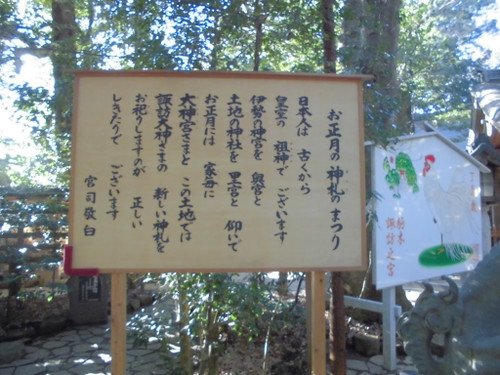 お正月の神札のまつり
日本人は 古くから
皇室の 祖神で ございます
伊勢の神宮を 奥宮と
土地の神社を 里宮と 仰いで
お正月には 家毎に
大神宮さまと この土地では
諏訪大神さまの 新しい神札を
お祝りしますのが 正しい
しきたりで ございます
宮司敬白
栃木
諏訪之宮